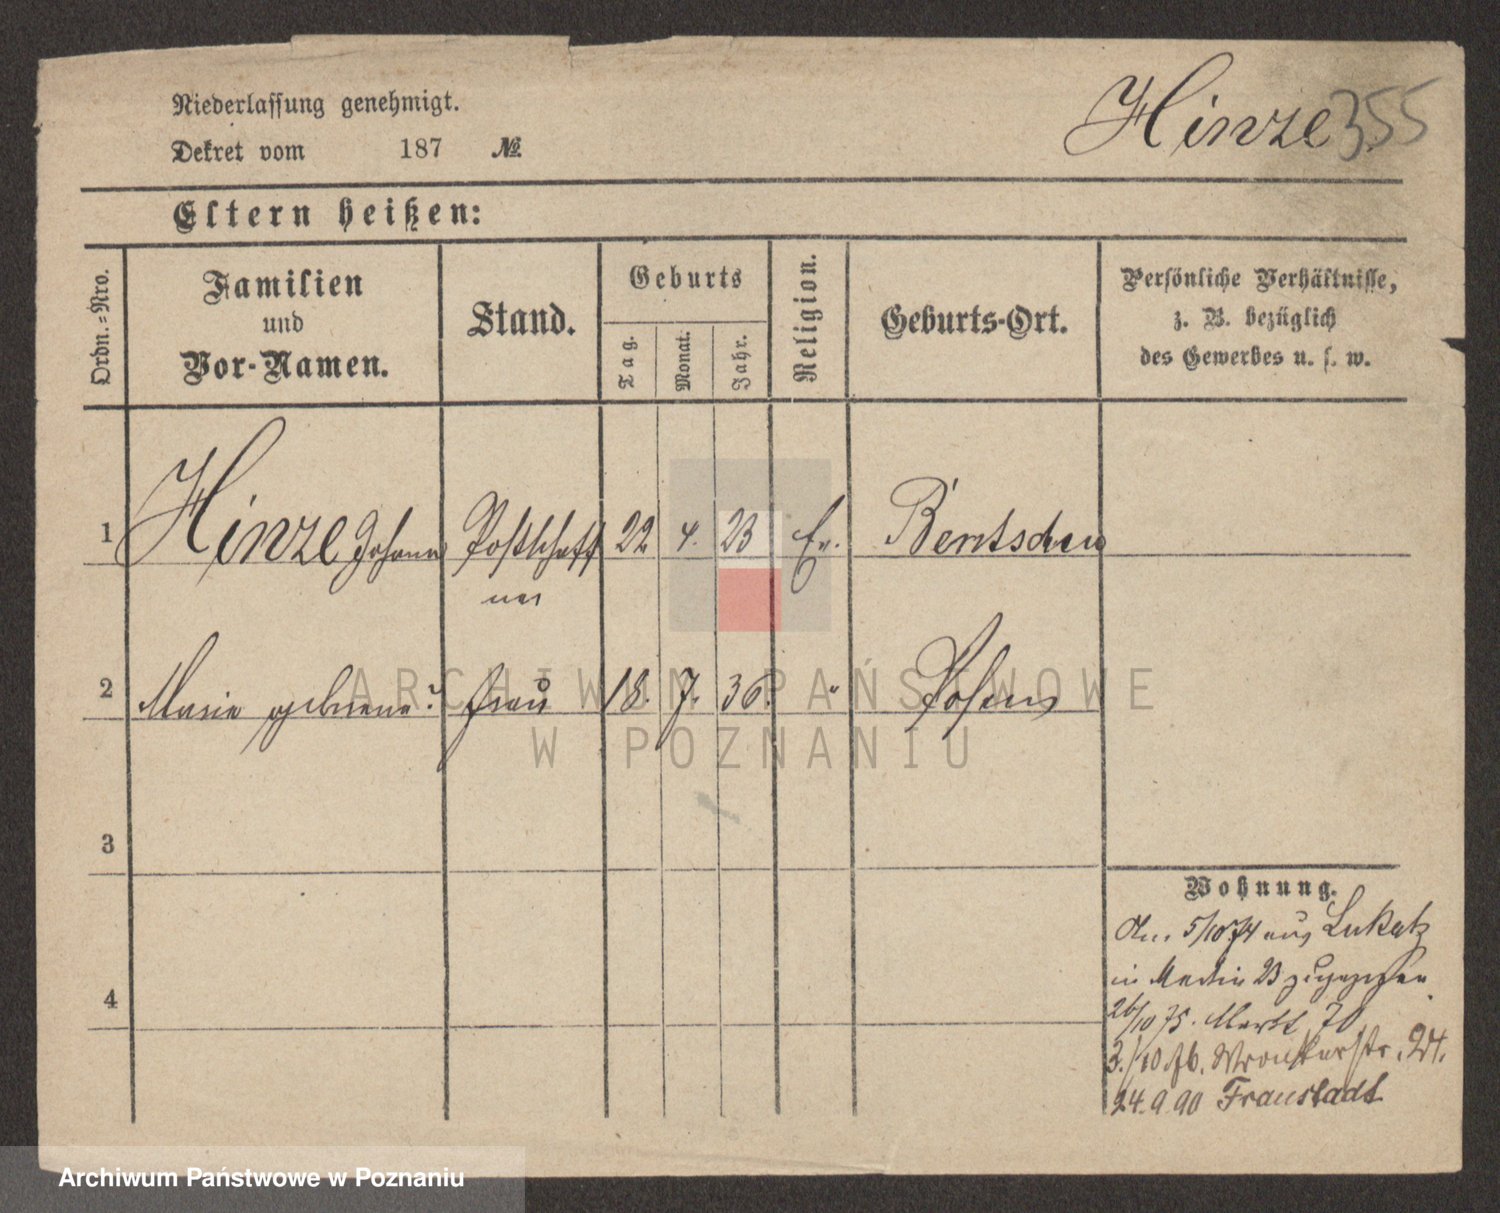 Niederlassung genehmigt.
Hinze 355
Dekret vom 187 №
Eltern heißen:
Ordn.-Nro.
Familien und Vor-Namen.
Stand.
Geburts
Tag. Monat. Jahr.
Religion.
Geburts-Ort.
Persönliche Verhältnisse,
z. B. bezüglich
des Gewerbes u. s. w.
1 Hinze Johann Postschaff 22 4. 23 Ev. Bentschen
ner
2 Marie geborene ? Frau 18. 7. 36. " Posen
3
4
Wohnung.
5/10 74 aus Lukatz
in 23 zugezogen
26/10 75. Markt 70
3./10 76. Wronkerstr. 24.
24.9.90 Fraustadt
ARCHIWUM PAŃSTWOWE
W POZNANIU
Archiwum Państwowe w Poznaniu